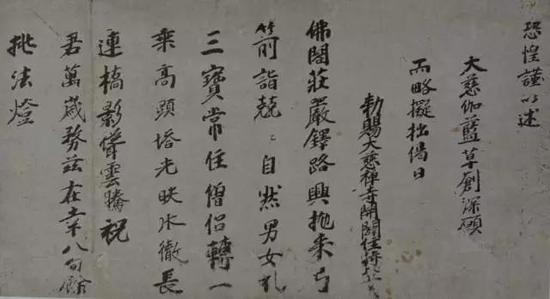 恐惶謹以述
大慈伽藍草創深願
而略擬拙偈曰
勅賜大慈禅寺開闢住持
佛閣莊嚴鐸路興抛来弓
箭詣兢〻自然男女礼
三寶常住僧侶轉一
乘高顕塔光映水徹長
連橋影聳雲騰祝
君萬歳務茲在幸八旬餘
挑法燈